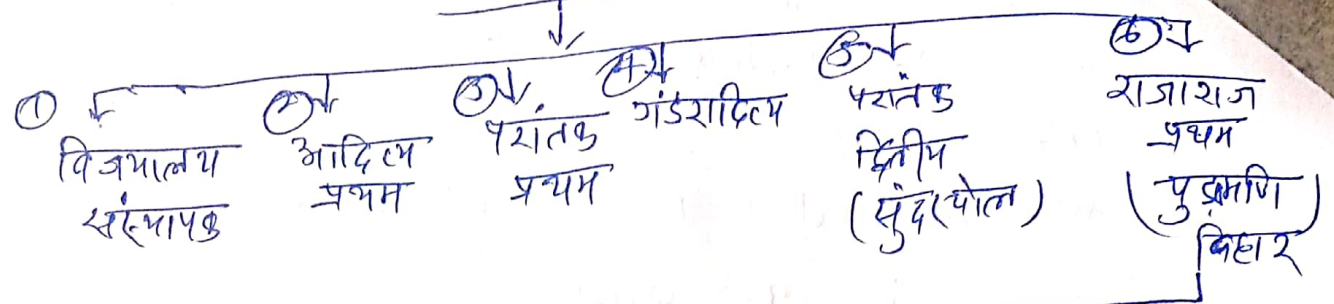 ① विजयालय
संस्थापक
② आदित्य
प्रथम
③ परांतक
प्रथम
④ गंडरादित्य
⑤ परांतक
द्वितीय
(सुंदरचोल)
⑥ राजाराज
प्रथम
(चुड़ामणि
विहार)